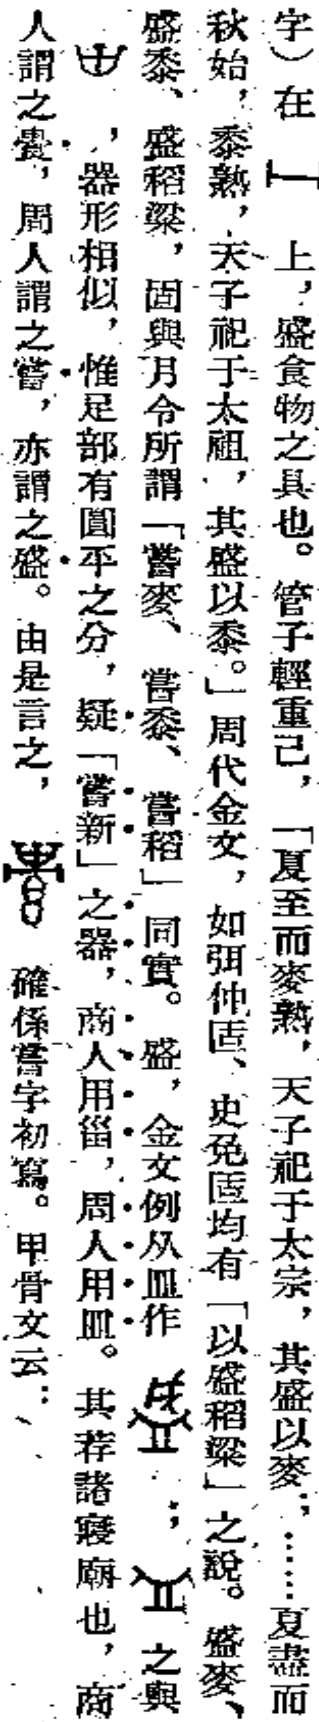 字）在 上，盛食物之具也。管子輕重己，「夏至而麥熟，天子祀于太宗，其盛以麥；……夏盡而
秋始，黍熟，天子祀于太祖，其盛以黍。」周代金文，如弭仲匜、史免匜均有「以盛稻粱」之說。盛麥、
盛黍、盛稻粱，固與月令所謂「嘗麥、嘗黍、嘗稻」同實。盛，金文例从皿作 ； 之與
，器形相似，惟足部有圓平之分，疑「嘗新」之器，商人用甾，周人用皿。其荐諸寢廟也，商
人謂之 ，周人謂之嘗，亦謂之盛。由是言之， 確係嘗字初寫。甲骨文云：